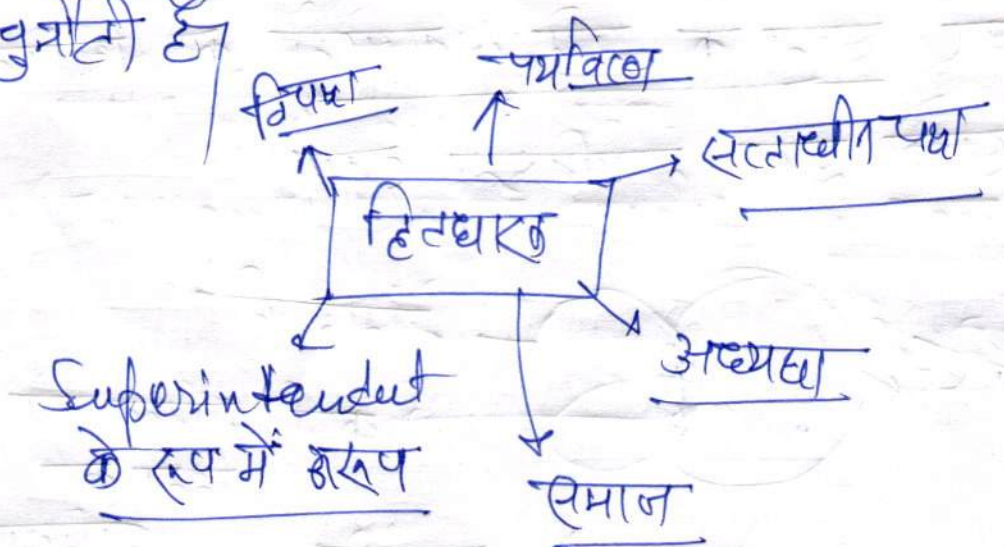 चुनौती है
विपक्ष
पर्यावरण
सत्ताधीन पक्ष
हितधारक
अध्यक्ष
Superintendent
के रूप में
समाज